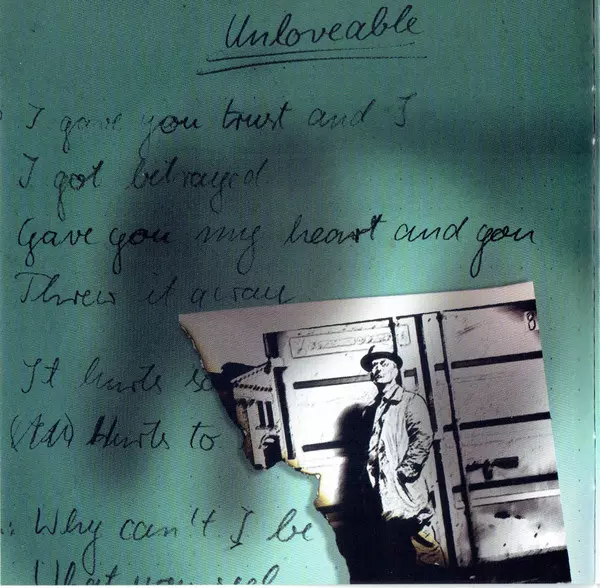 Unloveable
I gave you trust and I
I got betrayed
Gave you my heart and you
Threw it away
It hurts
Hurts to
Why can't I be
What you
8